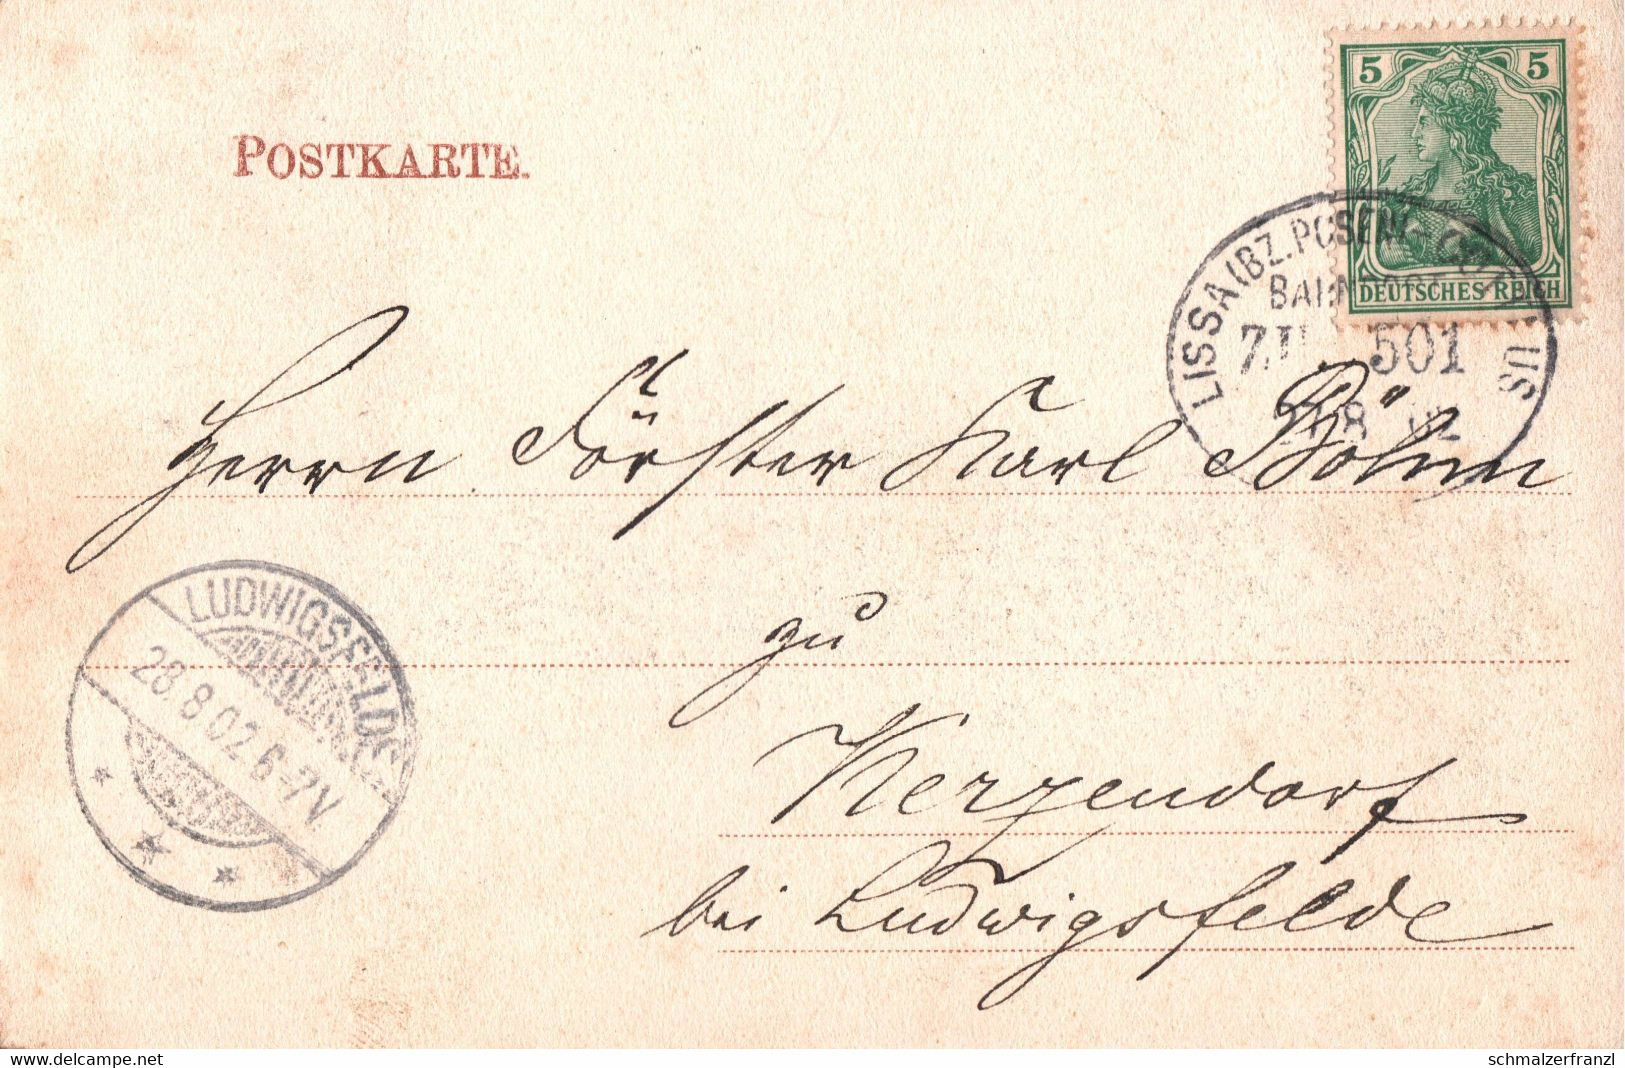 5 5
POSTKARTE.
LISSA (BZ. POSEN)
DEUTSCHES REICH
501
Herrn Förster Karl Böhm
LUDWIGSFELDE
28.8.02. 6-7V.
zu
Kerzendorf
bei Ludwigsfelde
www.delcampe.net
schmalzerfranzl